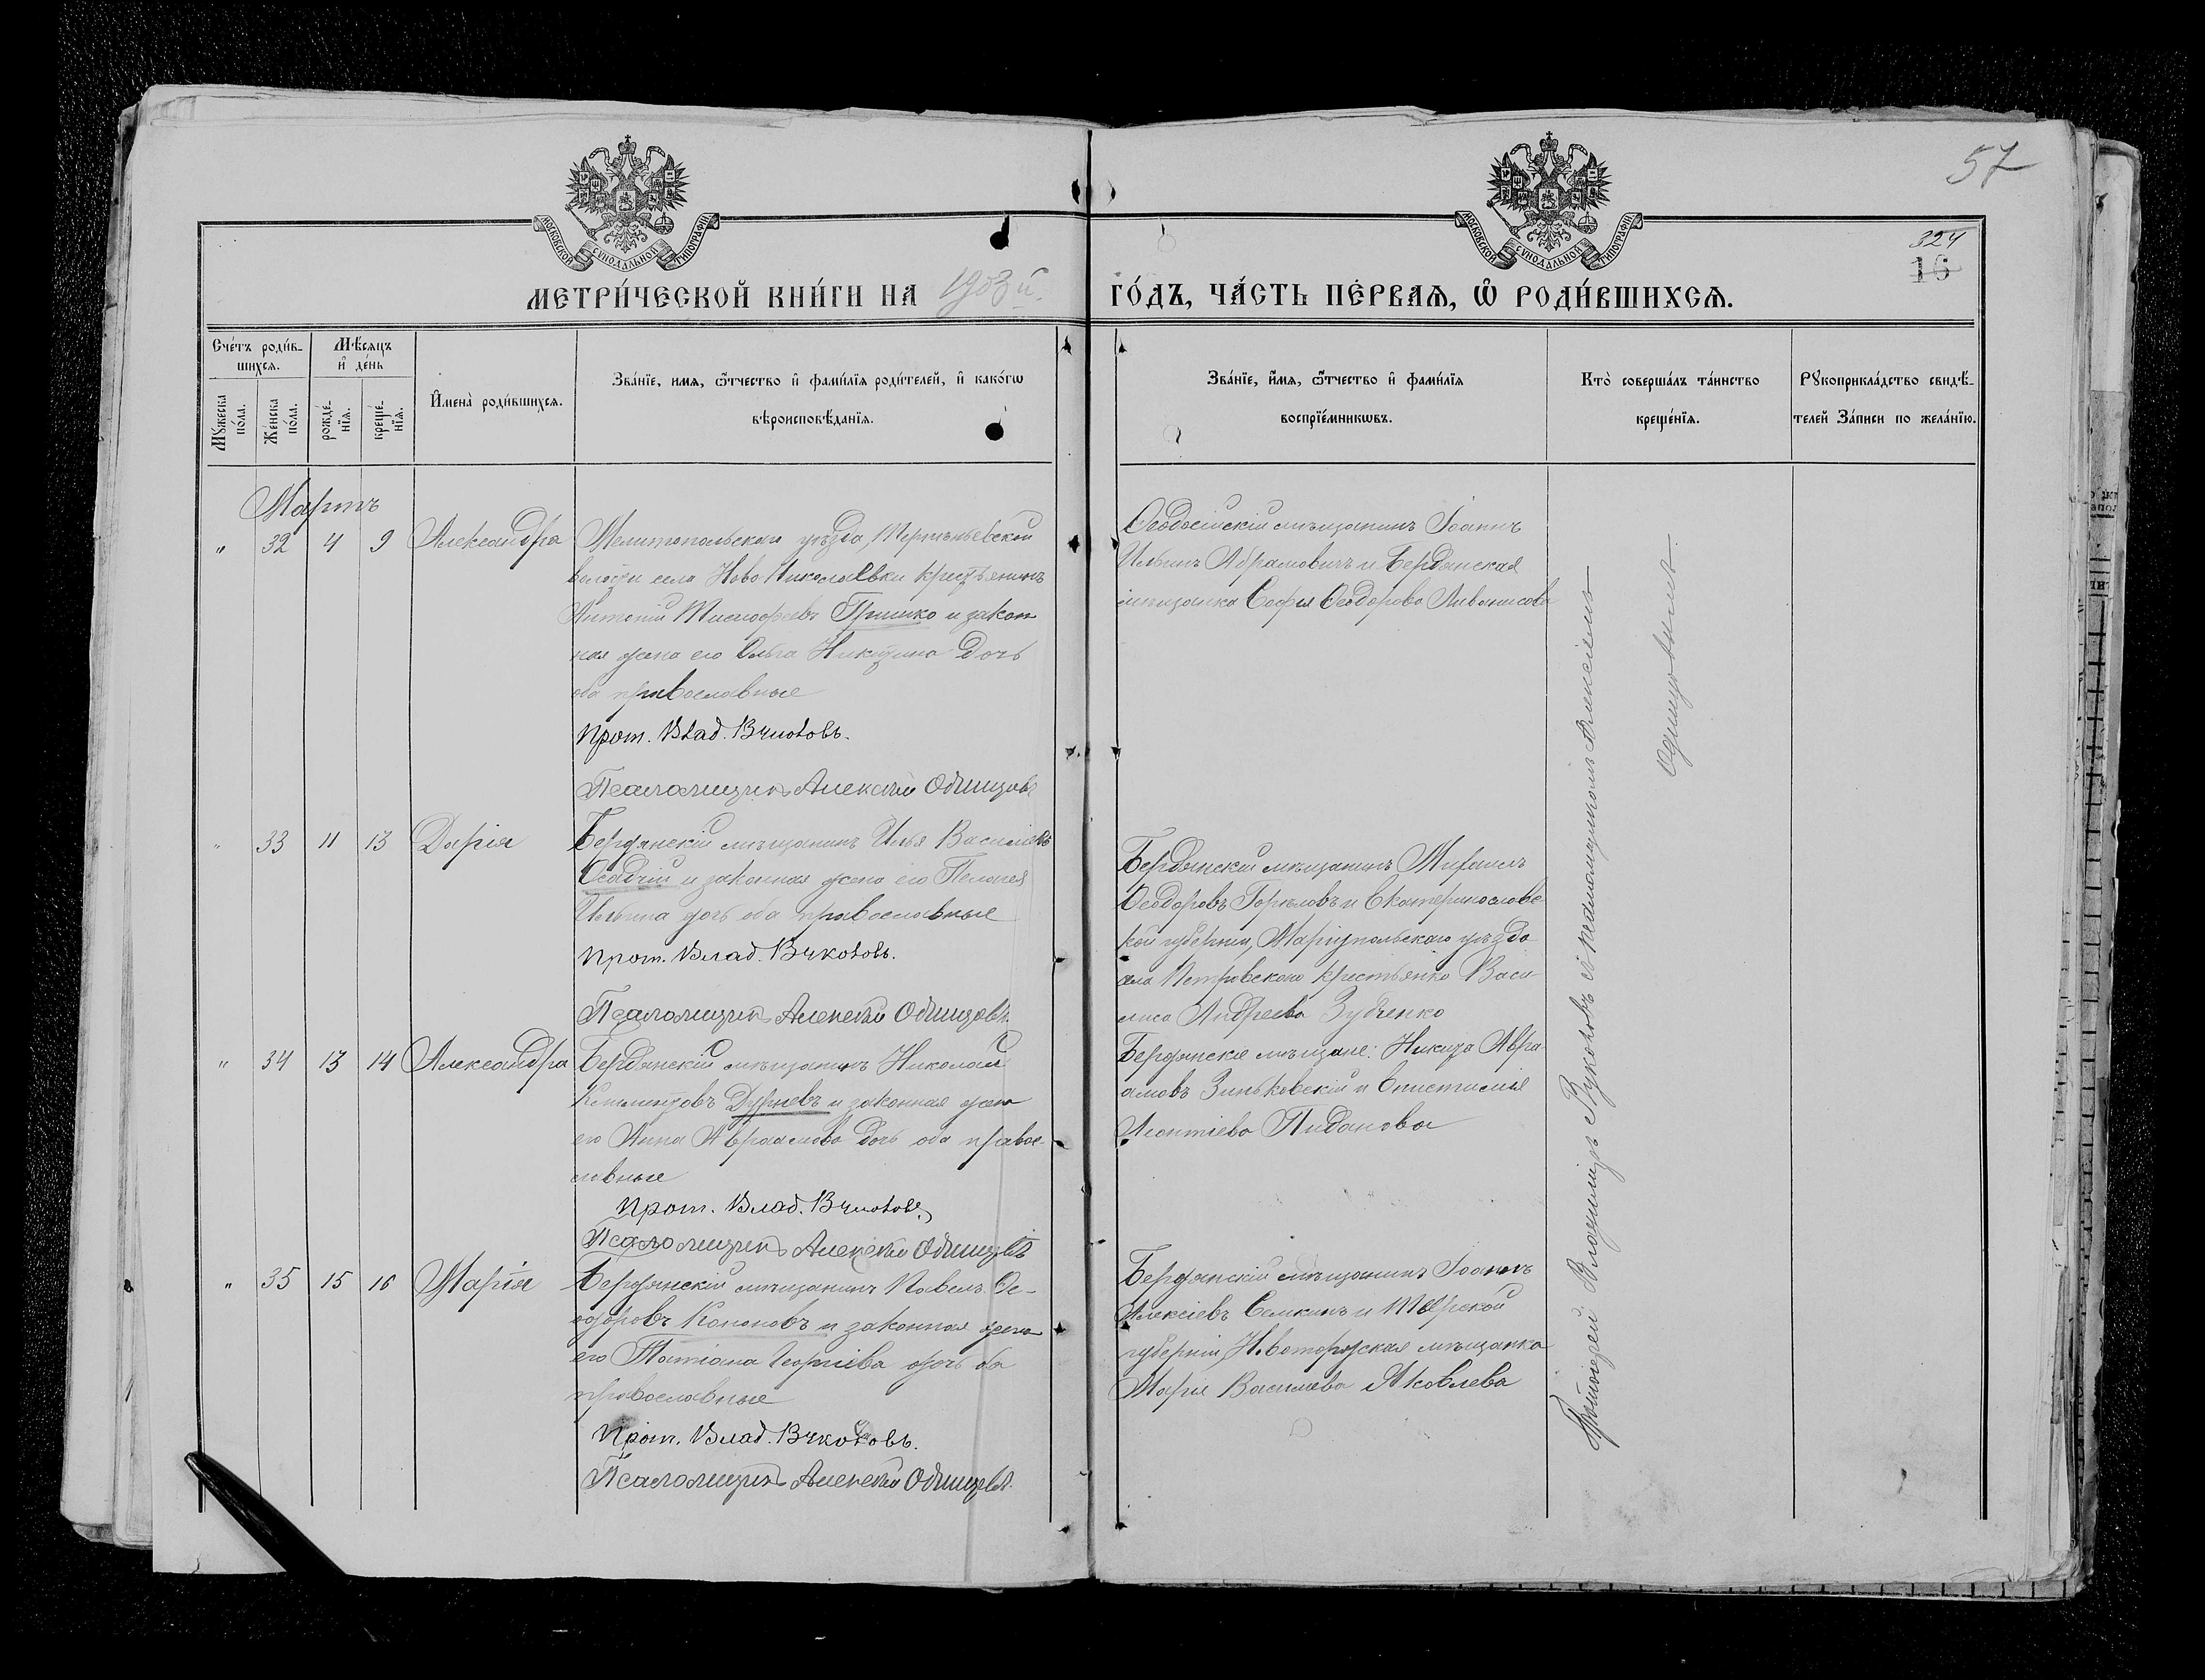 57
324
16
МОСКОВСКОЙ СУНОДАЛЬНОЙ ТИПОГРАФІИ
МОСКОВСКОЙ СУНОДАЛЬНОЙ ТИПОГРАФІИ
МЕТРИ́ЧЕСКОЙ КНИ́ГИ НА 1903 й. ГО́ДЪ, ЧА́СТЬ ПЕ́РВАѦ, Ѽ РОДИ́ВШИХСѦ.
Сче́тъ роди́в-
шихсѧ.
Мꙋ́жеска по́ла.
Же́нска по́ла.
Мѣ́сѧцъ
и҆ де́нь
рожде́-
нїѧ.
креще́-
нїѧ.
И҆мена̀ роди́вшихсѧ.
Зва́нїе, имѧ, ѻ҆́тчество и҆ фами́лїѧ роди́телей, и҆ како́гѡ
вѣроисповѣ́данїѧ.
Зва́нїе, и҆́мѧ, ѻ҆́тчество и҆ фами́лїѧ
воспрїе́мникѡвъ.
Кто̀ соверша́лъ та́инство
креще́нїѧ.
Рꙋкоприкла́дство свидѣ́-
телей За́писи по жела́нїю.
Мартъ
" 32 4 9 Александра
Мелитопольскаго уѣзда,
волости села Ново Николаевки крестьянинъ
Антоній Тимофеевъ Гришко и закон
ная жена его Ольга Никитина дочь
оба православные
Прот. Влад.
Псаломщикъ Алексѣй Одинцовъ
Ѳеодосійскій мѣщанинъ Іоаннъ
Ильинъ Абрамовичъ и Бердянская
мѣщанка Софія Ѳеодорова
" 33 11 13 Дарія
Бердянскій мѣщанинъ Илья Васильевъ
Осадчій и законная жена его Пелагея
Ильина дочь оба православные
Прот. Влад.
Псаломщикъ Алексѣй Одинцовъ.
Бердянскій мѣщанинъ Михаилъ
Ѳеодоровъ Горѣловъ и Екатеринославс
кой губерніи, Маріупольскаго уѣзда
села Петровскаго крестьянка Васи
лиса Андреева Зубченко
" 34 13 14 Александра
Бердянскій мѣщанинъ Николай
Климентовъ Дурневъ и законная жена
его Анна Авраамова дочь оба правос-
лавные
Прот. Влад.
Псаломщикъ Алексѣй Одинцовъ
Бердянскіе мѣщане: Никита Авра
амовъ Зиньковскій и Епистимія
Леонтіева
" 35 15 16 Марія
Бердянскій мѣщанинъ Павелъ Ѳе-
одоровъ Кононовъ и законная жена
его Татіана Георгіева дочь оба
православные
Прот. Влад.
Псаломщикъ Алексѣй Одинцовъ.
Бердянскій мѣщанинъ Іоаннъ
Алексіевъ Семкинъ и Тверской
губерніи, Новоторжская мѣщанка
Марія Васильева Яковлева
Протоіерей Владиміръ съ псаломщикомъ Алексіемъ
Одинцовымъ.